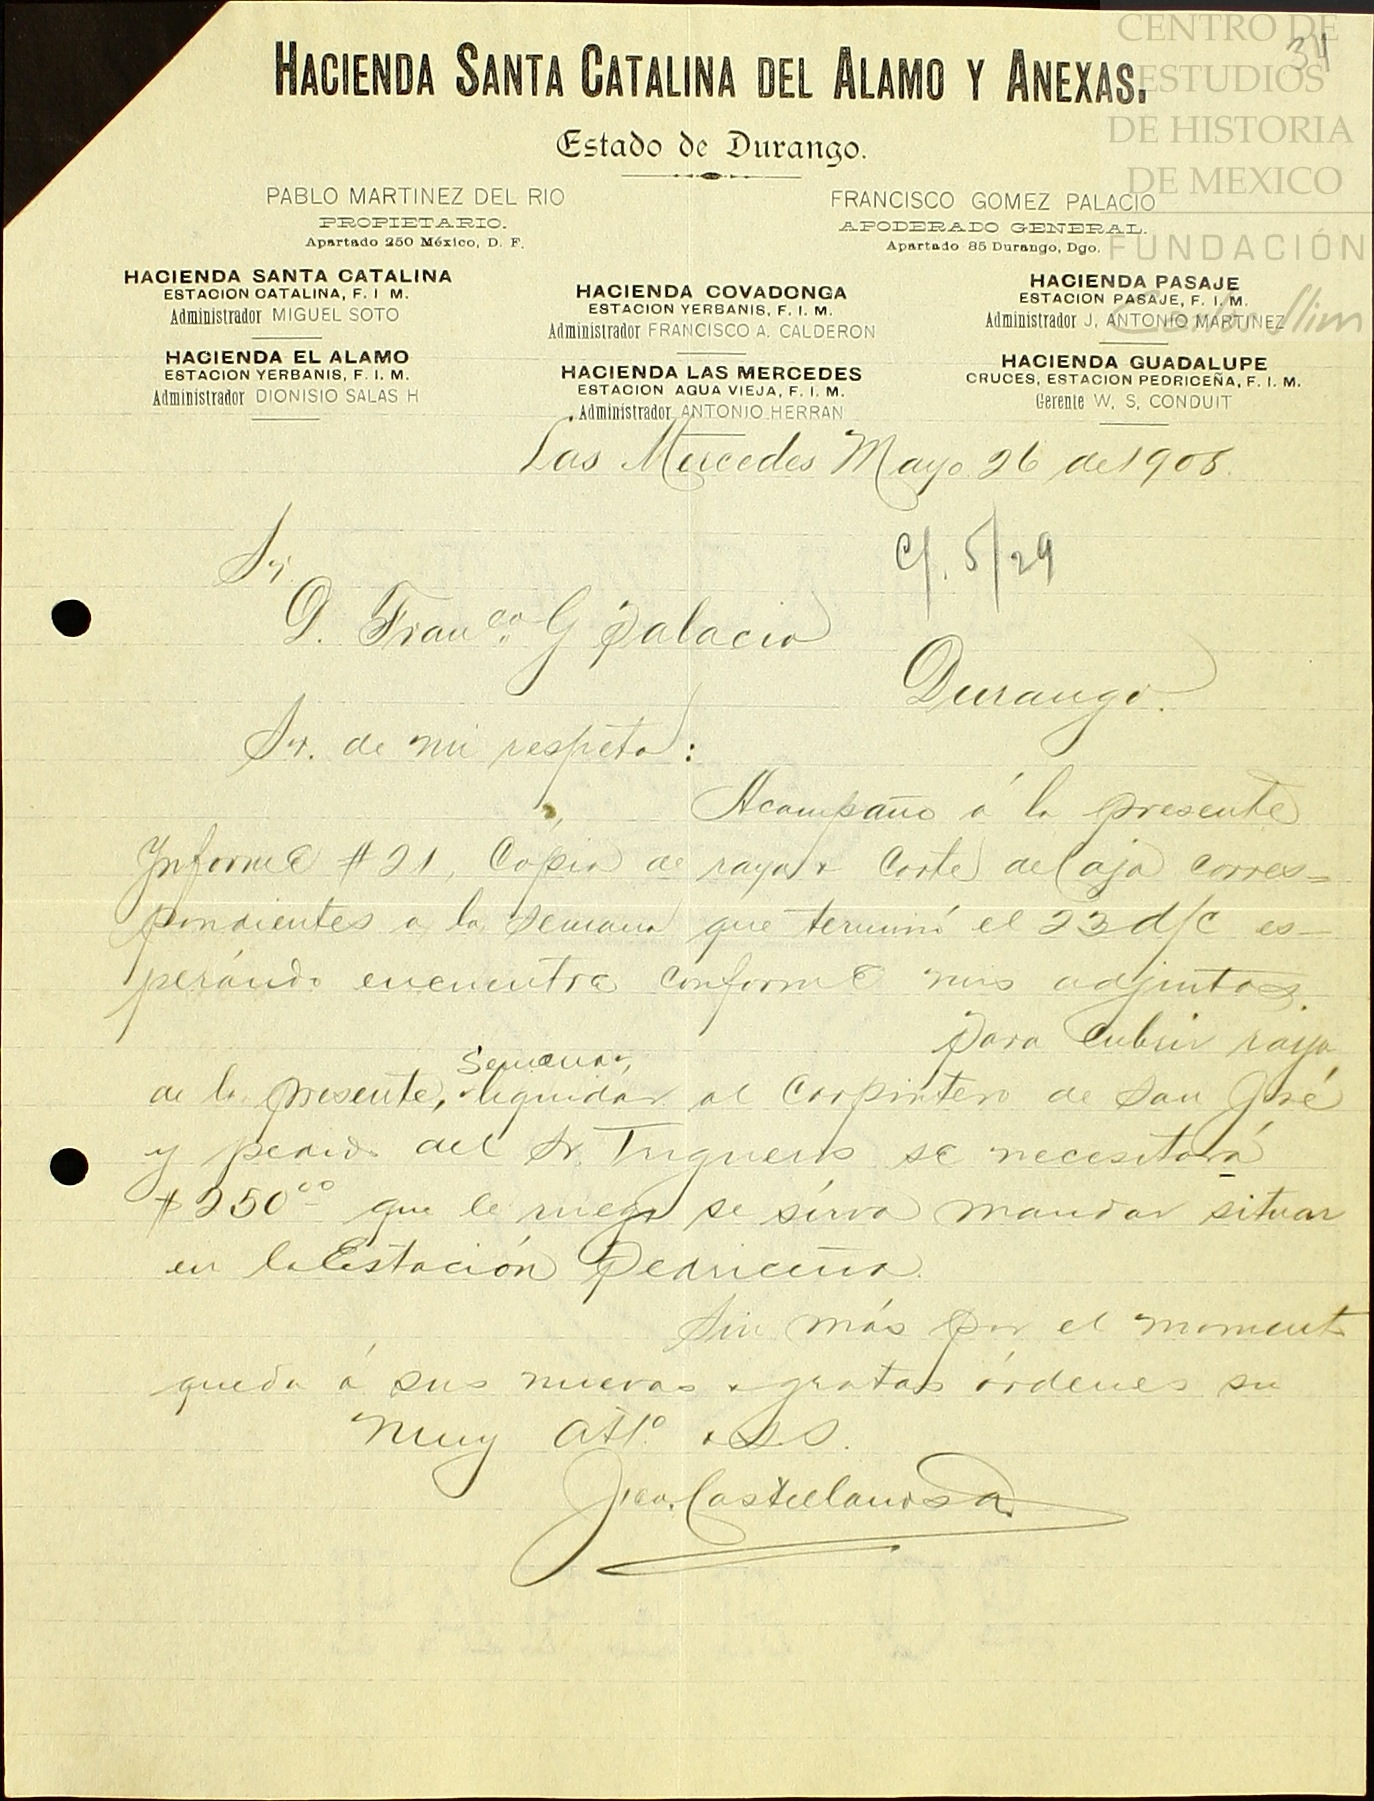 CENTRO DE
ESTUDIOS
DE HISTORIA
DE MEXICO
FUNDACIÓN
Carlos Slim
34
HACIENDA SANTA CATALINA DEL ALAMO Y ANEXAS.
Estado de Durango.
PABLO MARTINEZ DEL RIO
PROPIETARIO.
Apartado 250 México, D. F.
FRANCISCO GOMEZ PALACIO
APODERADO GENERAL.
Apartado 85 Durango, Dgo.
HACIENDA SANTA CATALINA
ESTACION CATALINA, F. I M.
Administrador MIGUEL SOTO
HACIENDA EL ALAMO
ESTACION YERBANIS, F. I. M.
Administrador DIONISIO SALAS H
HACIENDA COVADONGA
ESTACION YERBANIS, F. I. M.
Administrador FRANCISCO A. CALDERON
HACIENDA LAS MERCEDES
ESTACION AGUA VIEJA, F. I. M.
Administrador ANTONIO HERRAN
HACIENDA PASAJE
ESTACION PASAJE, F. I. M.
Administrador J. ANTONIO MARTINEZ
HACIENDA GUADALUPE
CRUCES, ESTACION PEDRICEÑA, F. I. M.
Gerente W. S. CONDUIT
Las Mercedes Mayo 26 de 1908.
C/. 5/29
Sr.
D. Franco. G Palacio
Durango.
Sr. de mi respeto:
Acompaño á la presente
Informe #21, Copia de raya & Corte de Caja corres=
pondientes a la semana que terminó el 23 d/c es-
perándo encuentre conforme mis adjuntos.
para cubrir raya
de la presente, Semana, & liquidar al Carpintero de San José
y pedido del Sr. Trigueros se necesitará
$250.00 que le ruego se sirva mandar situar
en la Estación Pedriceña.
Sin más por el momento
queda á sus nuevas & gratas órdenes su
muy Atto. & S.S.
Castellanos